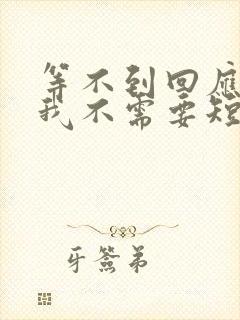 等不到回應
我不需要短
牙簽弟